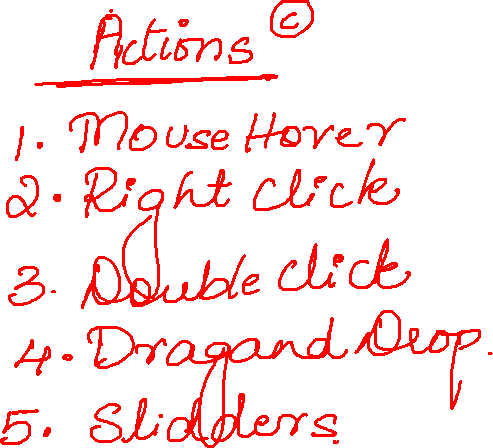 Actions ©
1. Mouse Hover
2. Right click
3. Double click
4. Drag and Drop.
5. Slidders